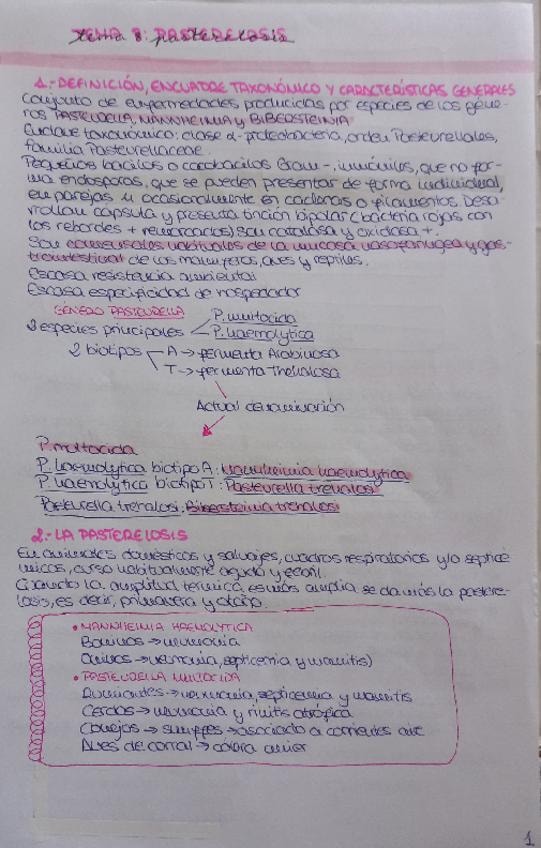 TEMA 8: PASTERELOSIS
1.- DEFINICIÓN, ENCUADRE TAXONÓMICO Y CARACTERÍSTICAS GENERALES
Conjunto de enfermedades producidas por especies de los géne-
ros PASTEURELLA, MANNHEIMIA y BIBERSTEINIA
Encuadre taxonómico: clase α-proteobacteria, orden Pasteurellales,
familia Pasteurellaceae.
Pequeños bacilos o cocobacilos Gram -, inmóviles, que no for-
ma endosporas, que se pueden presentar de forma individual,
en parejas u ocasionalmente en cadenas o filamentos. Desa-
rrollan cápsula y presenta tinción bipolar (bacteria rojas con
los rebordes + remarcados) Son catalasa y oxidasa +.
Son comensales habituales de la mucosa nasofaringea y gas-
trointestinal de los mamíferos, aves y reptiles.
Escasa resistencia ambiental
Escasa especificidad de hospedador
GÉNERO PASTEURELLA
2 especies principales P. multocida
P. haemolytica
2 biotipos A → fermenta Arabinosa
T → fermenta Trehalosa
Actual denominación
P. multocida
P. haemolytica biotipo A: Mannheimia haemolytica
P. haemolytica biotipo T: Pasteurella trehalosi
Pasteurella trehalosi: Bibersteinia trehalosi
2.- LA PASTERELOSIS
En animales domésticos y salvajes, cuadros respiratorios y/o septicé
micos, curso habitualmente agudo y febril.
Cuando la amplitud térmica es más amplia se da más la pastere-
losis, es decir, primavera y otoño.
• MANNHEIMIA HAEMOLYTICA
Bovinos → neumonía
Ovinos → neumonía, septicemia y mamitis)
• PASTEURELLA MULTOCIDA
Rumiantes → neumonía, septicemia y mamitis
Cerdos → neumonía y rinitis atrófica
Conejos → snuffles → asociado a corrientes aire
Aves de corral → cólera aviar
1